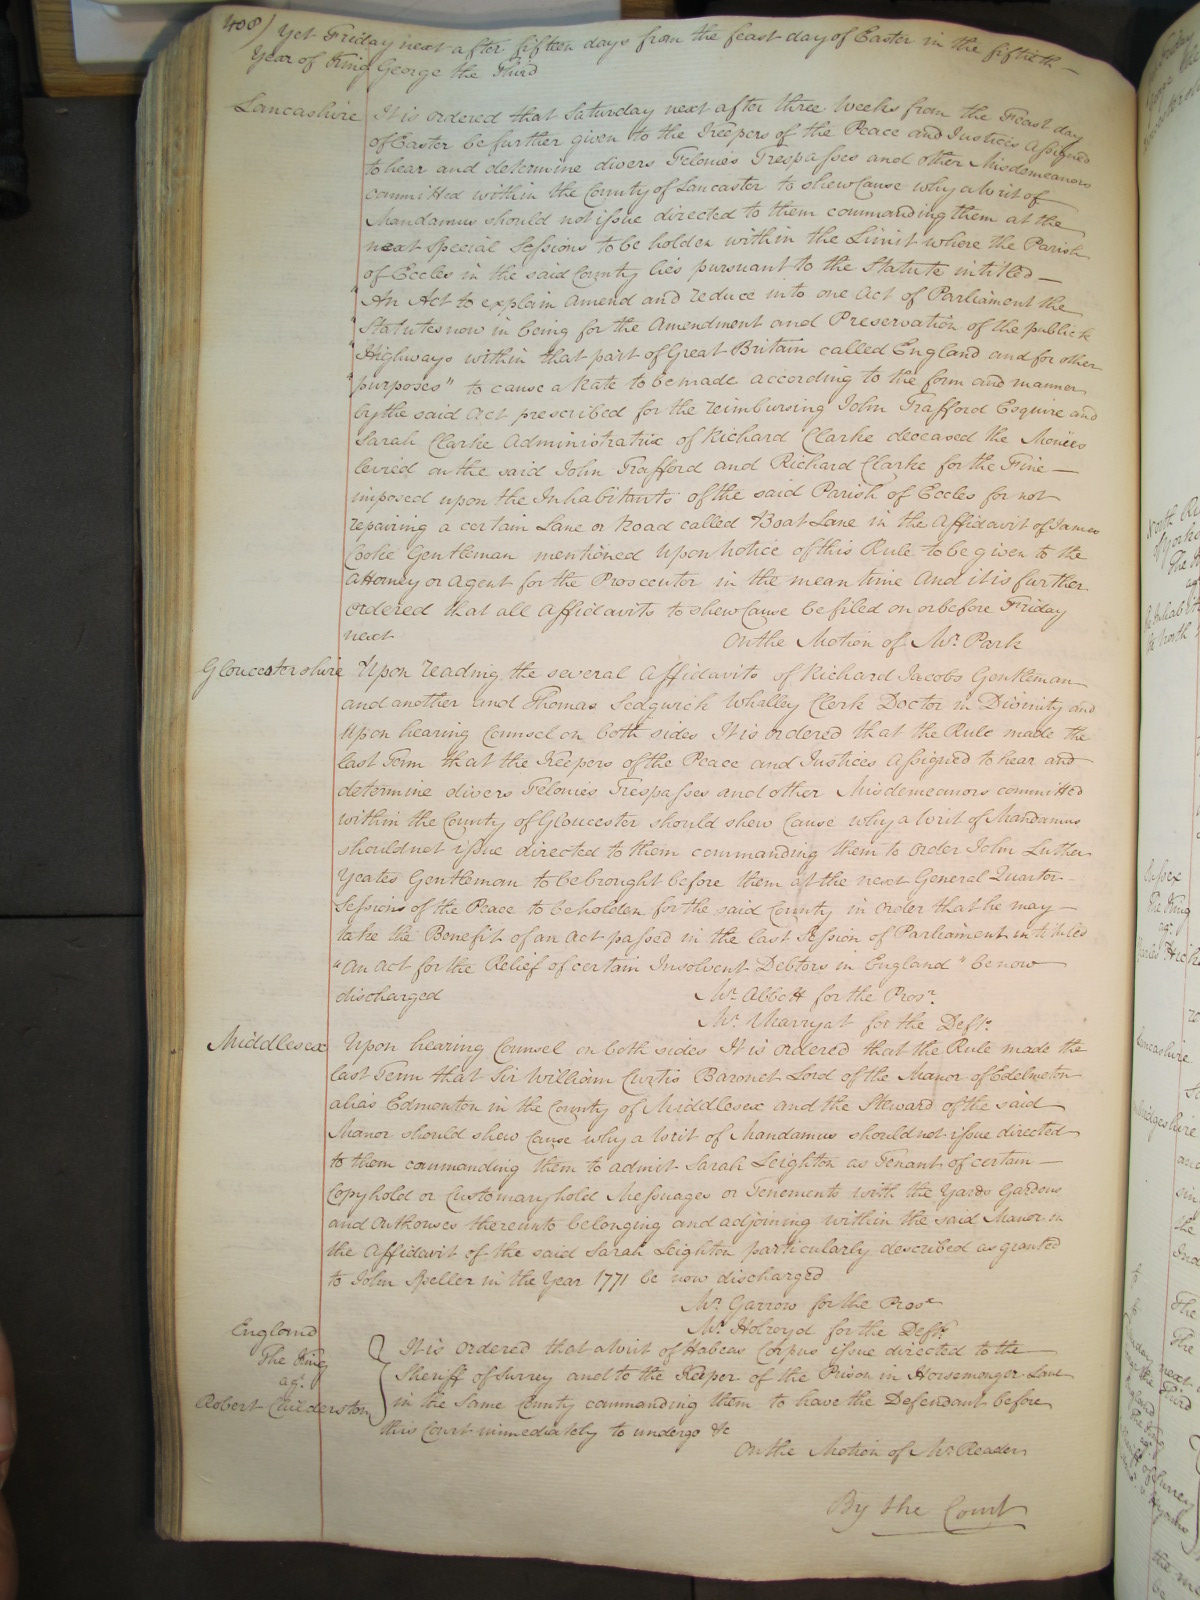 408) Yet Friday next after fifteen days from the feast day of Easter in the fiftieth
Year of King George the Third
Lancashire It is ordered that Saturday next after three Weeks from the Feast day
of Easter be further given to the Keepers of the Peace and Justices Assigned
to hear and determine divers Felonies Trespasses and other Misdemeanors
committed within the County of Lancaster to shew Cause why a Writ of
Mandamus should not issue directed to them commanding them at the
next Special Sessions to be holden within the Limit where the Parish
of Eccles in the said County lies pursuant to the Statute intitled
"An Act to explain Amend and reduce into one Act of Parliament the
"Statutes now in being for the Amendment and Preservation of the publick
"Highways within that part of Great Britain called England and for other
"purposes" to cause a Rate to be made according to the form and manner
by the said Act prescribed for the reimbursing John Trafford Esquire and
Sarah Clarke Administratrix of Richard Clarke deceased the Monies
levied on the said John Trafford and Richard Clarke for the Fine
imposed upon the Inhabitants of the said Parish of Eccles for not
repairing a certain Lane or Road called Boat Lane in the Affidavit of James
Cooke Gentleman mentioned Upon Notice of this Rule to be given to the
Attorney or Agent for the Prosecutor in the mean time And it is further
Ordered that all Affidavits to shew Cause be filed on or before Friday
next On the Motion of Mr. Park
Gloucestershire Upon reading the several Affidavits of Richard Jacobs Gentleman
and another and Thomas Sedgwick Whalley Clerk Doctor in Divinity and
Upon hearing Counsel on both sides It is ordered that the Rule made the
last Term that the Keepers of the Peace and Justices Assigned to hear and
determine divers Felonies Trespasses and other Misdemeanors committed
within the County of Gloucester should shew Cause why a Writ of Mandamus
should not issue directed to them commanding them to order John Luther
Yeates Gentleman to be brought before them at the next General Quarter
Sessions of the Peace to be holden for the said County in order that he may
take the Benefit of an Act passed in the last Session of Parliament intituled
"An Act for the Relief of certain Insolvent Debtors in England" be now
discharged Mr. Abbott for the Prosr.
Mr. Marryat for the Deft.
Middlesex Upon hearing Counsel on both sides It is ordered that the Rule made the
last Term that Sir William Curtis Baronet Lord of the Manor of Edelmeton
alias Edmonton in the County of Middlesex and the Steward of the said
Manor should shew Cause why a Writ of Mandamus should not issue directed
to them commanding them to admit Sarah Leighton as Tenant of certain
Copyhold or Customaryhold Messuages or Tenements with the Yards Gardens
and Outhouses thereunto belonging and adjoining within the said Manor in
the Affidavit of the said Sarah Leighton particularly described as granted
to John Speller in the Year 1771 be now discharged
Mr. Garrow for the Prosr.
Mr. Holroyd for the Deft.
England
The King
agt.
Robert Childerston
It is Ordered that a Writ of Habeas Corpus issue directed to the
Sheriff of Surrey and to the Keeper of the Prison in Horsemonger Lane
in the Same County commanding them to have the Defendant before
this Court immediately to undergo &c
On the Motion of Mr. Reader
By the Court